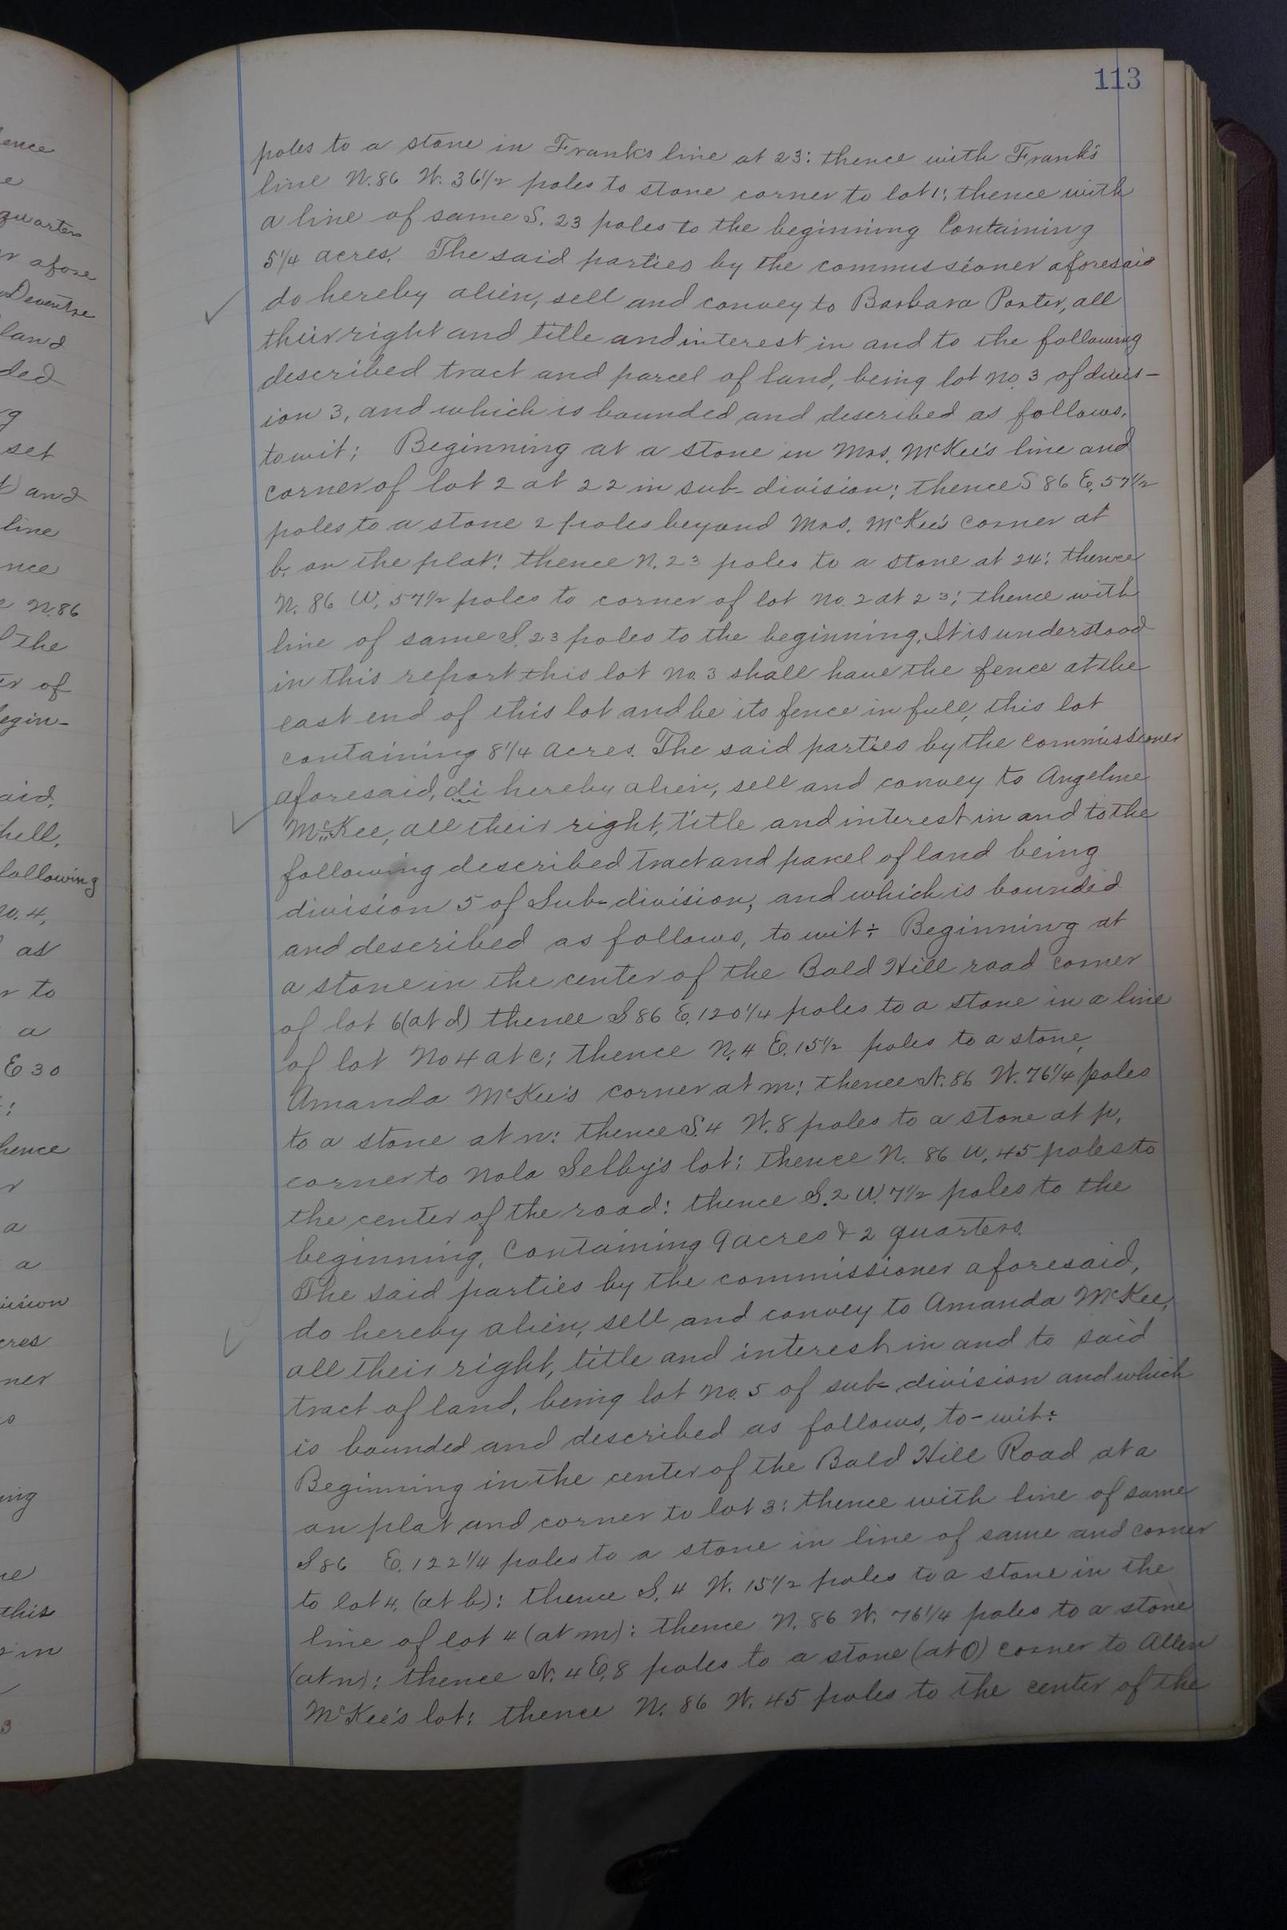 113
poles to a stone in Frank's line at 23: thence with Frank's
line N. 86 W. 36 1/2 poles to stone corner to lot 1; thence with
a line of same S. 23 poles to the beginning Containing
5 1/4 acres. The said parties by the commissioner aforesaid
do hereby alien, sell and convey to Barbara Porter, all
their right and title and interest in and to the following
described tract and parcel of land, being lot No. 3 of divis-
ion 3, and which is bounded and described as follows,
towit; Beginning at a stone in Mrs. McKee's line and
corner of lot 2 at 22 in sub-division; thence S 86 E. 57 1/2
poles to a stone 2 poles beyond Mrs. McKee's corner at
b. on the plat: thence N. 23 poles to a stone at 24: thence
N. 86 W. 57 1/2 poles to corner of lot No. 2 at 23; thence with
line of same S. 23 poles to the beginning. It is understood
in this report this lot No. 3 shall have the fence at the
east end of this lot and be its fence in full, this lot
containing 8 1/4 acres. The said parties by the commissioner
aforesaid, di hereby alien, sell and convey to Angeline
McKee, all their right, title and interest in and to the
following described tract and parcel of land being
division 5 of Sub-division, and which is bounded
and described as follows, to wit: Beginning at
a stone in the center of the Bald Hill road corner
of lot 6 (at d) thence S 86 E. 120 1/4 poles to a stone in a line
of lot No 4 at c; thence N. 4 E. 15 1/2 poles to a stone,
Amanda McKee's corner at m: thence N. 86 W. 76 1/4 poles
to a stone at n: thence S. 4 W. 8 poles to a stone at p,
corner to Nola Selby's lot: thence N. 86 W. 45 poles to
the center of the road: thence S. 2 W. 7 1/2 poles to the
beginning, Containing 9 acres & 2 quarters.
The said parties by the commissioner aforesaid,
do hereby alien, sell and convey to Amanda McKee,
all their right, title and interest in and to said
tract of land, being lot No. 5 of sub-division and which
is bounded and described as follows, to-wit:
Beginning in the center of the Bald Hill Road at a
on plat and corner to lot 3: thence with line of same
S 86 E. 122 1/4 poles to a stone in line of same and corner
to lot 4, (at b): thence S. 4 W. 15 1/2 poles to a stone in the
line of lot 4 (at m): thence N. 86 W. 76 1/4 poles to a stone
(at n): thence N. 4 E. 8 poles to a stone (at O) corner to Allen
McKee's lot: thence N. 86 W. 45 poles to the center of the